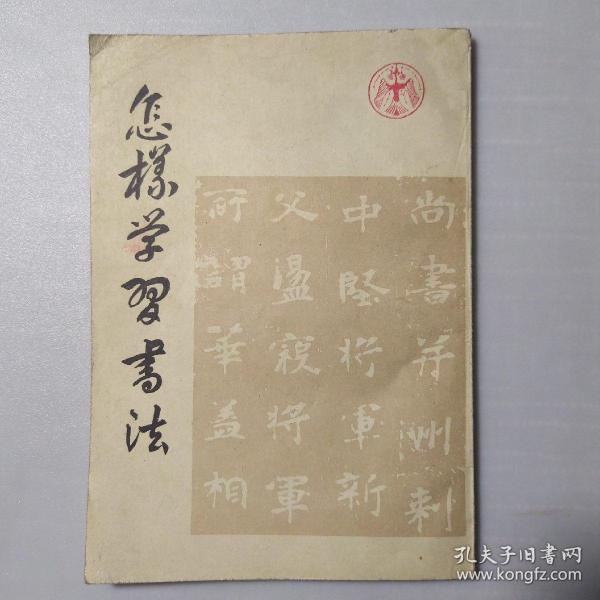 怎樣学習書法
尚書并州刺
中堅将軍新
父盪寇将軍
所謂華蓋相
孔夫子旧書网
www.kongfz.com